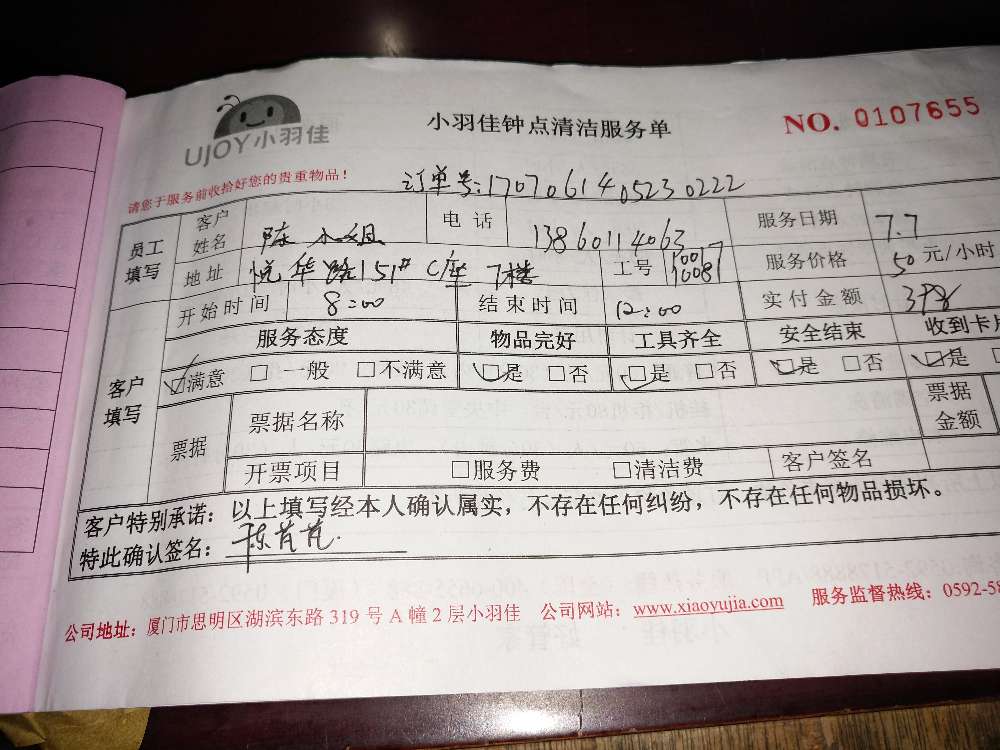 UJOY小羽佳
小羽佳钟点清洁服务单
NO. 0107655
请您于服务前收拾好您的贵重物品！
订单号:17070614052230222
员工填写
客户姓名 陈小姐 电话 13860114063 服务日期 7.7
地址 悦华路151# C座 7楼 工号 10067 10081 服务价格 50 元/小时
开始时间 8:00 结束时间 12:00 实付金额 398
客户填写
服务态度 物品完好 工具齐全 安全结束 收到卡片
☑满意 □一般 □不满意 ☑是 □否 ☑是 □否 ☑是 □否 ☑是
票据 票据名称 票据金额
开票项目 □服务费 □清洁费 客户签名
客户特别承诺：以上填写经本人确认属实，不存在任何纠纷，不存在任何物品损坏。
特此确认签名：陈芃芃
公司地址：厦门市思明区湖滨东路 319 号 A 幢 2 层小羽佳 公司网站：www.xiaoyujia.com 服务监督热线：0592-58